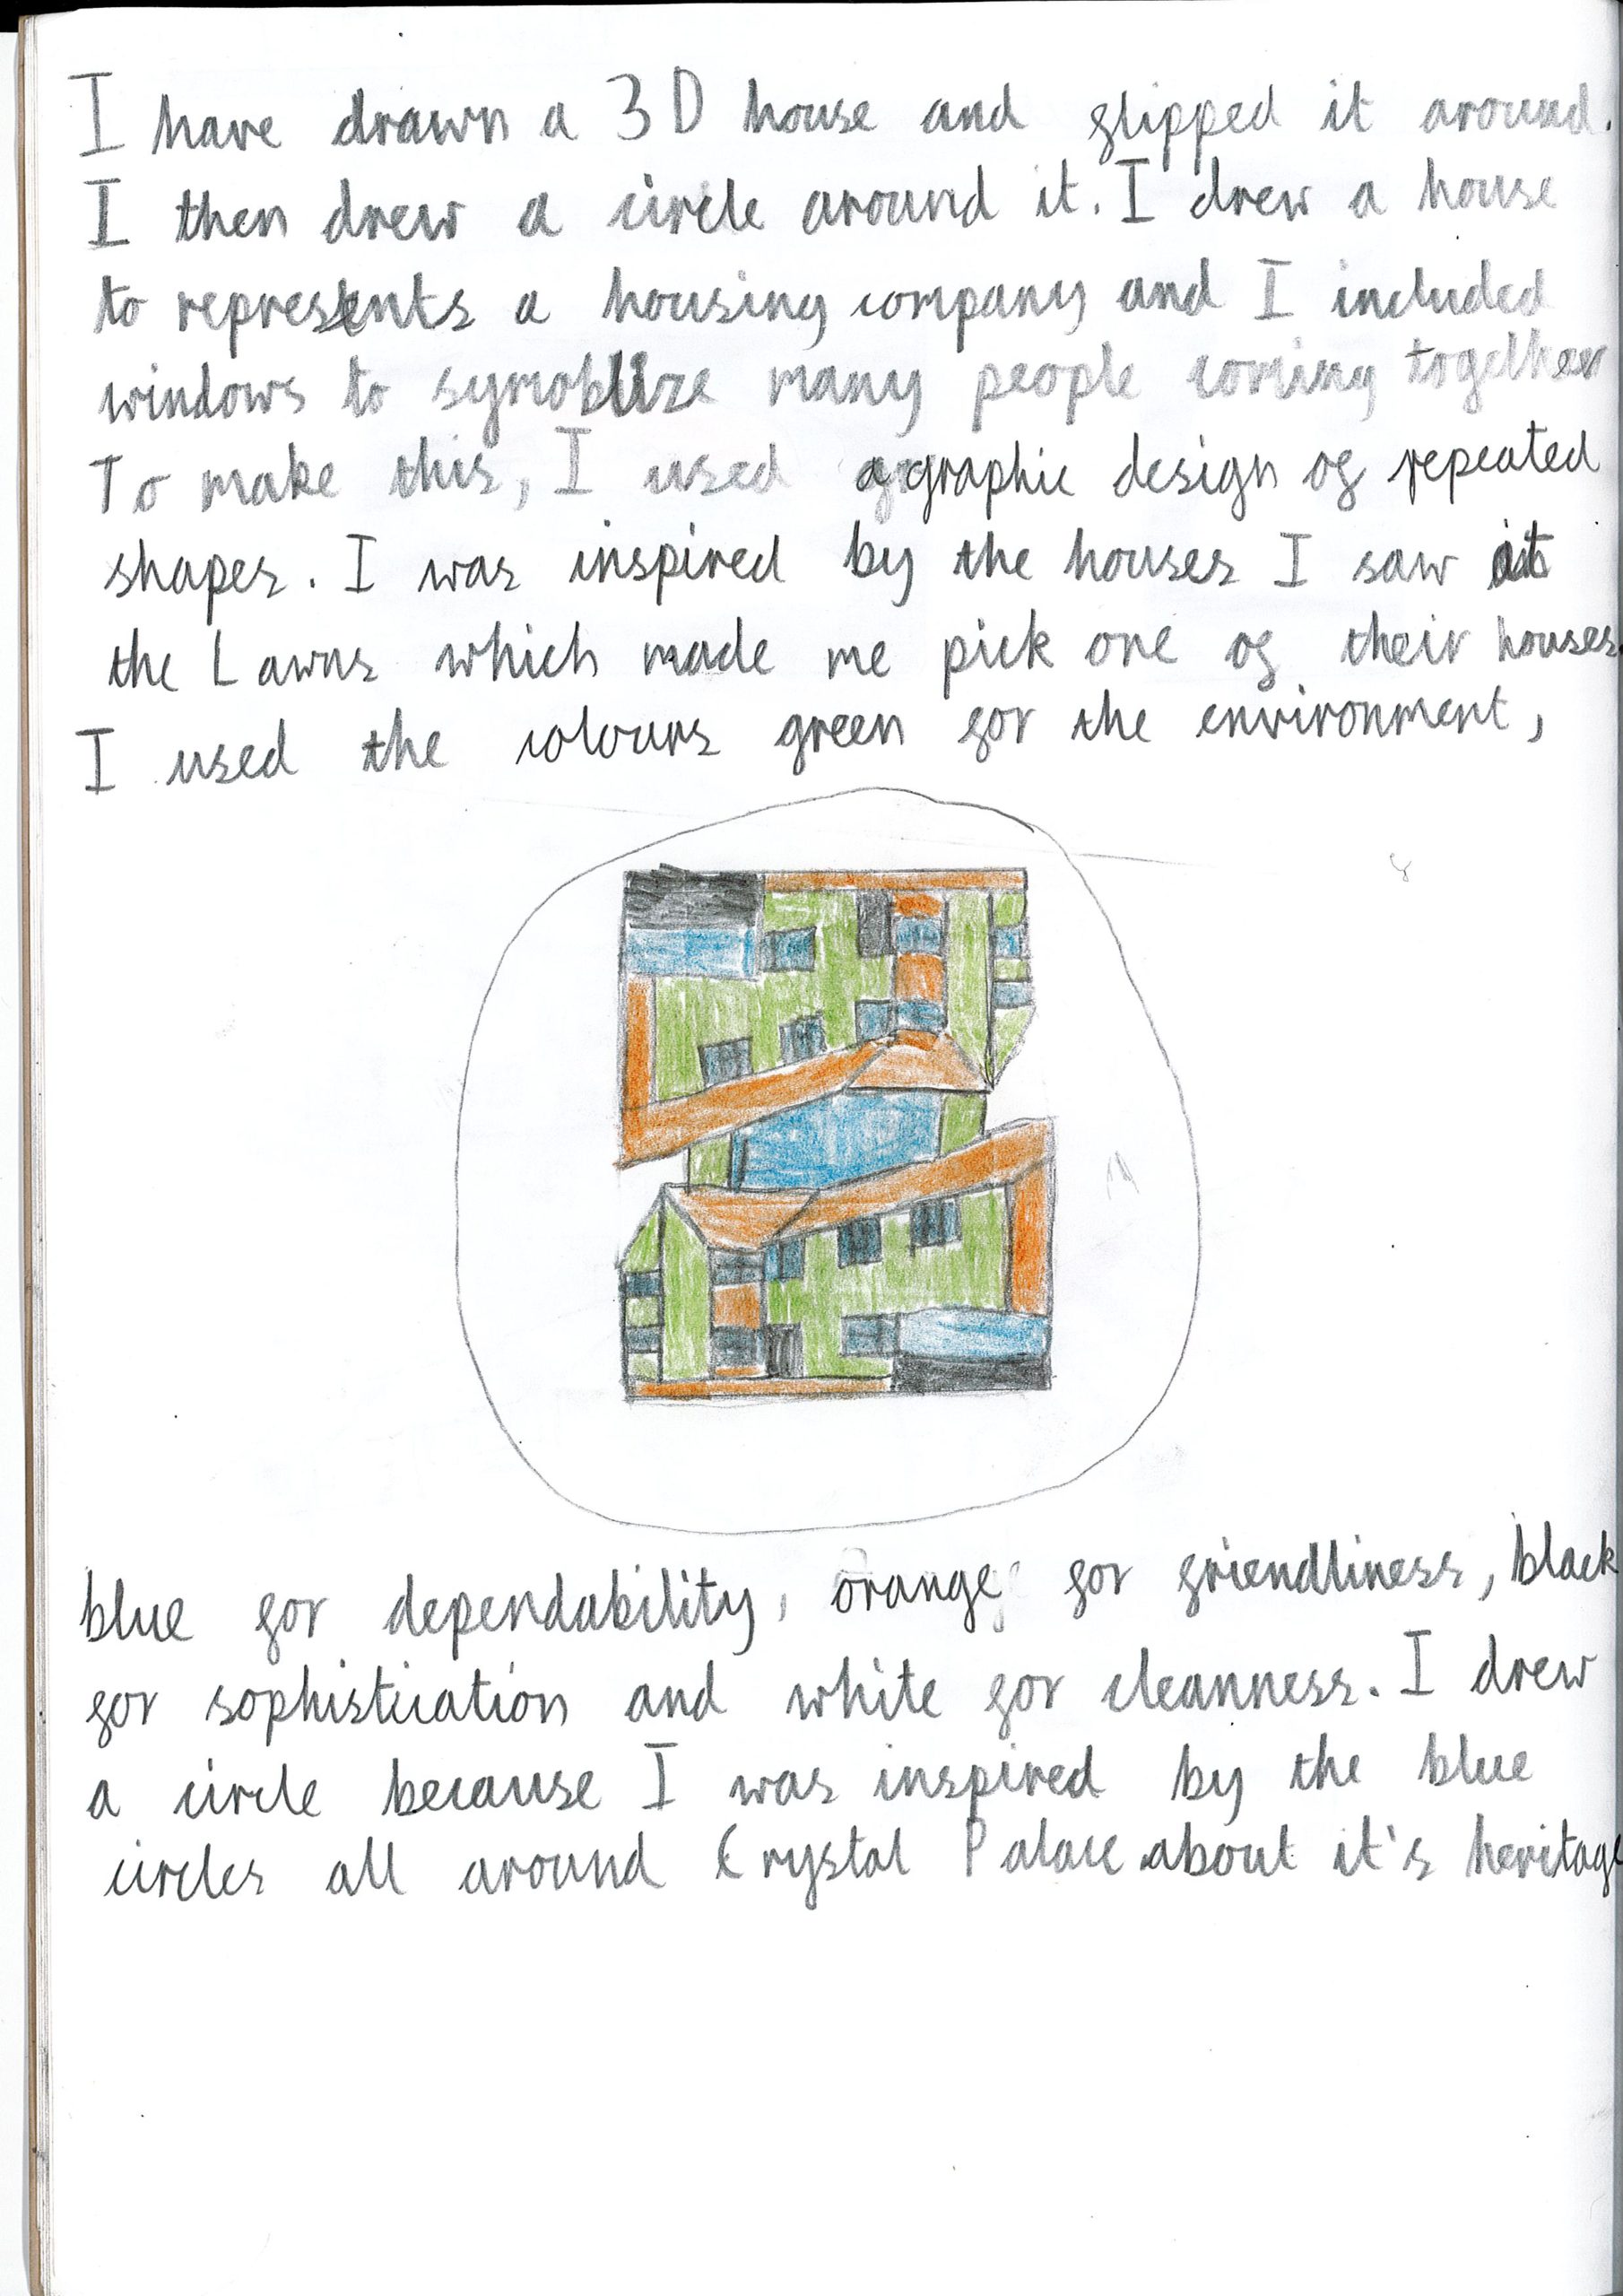 I have drawn a 3D house and flipped it around.
I then drew a circle around it. I drew a house
to represents a housing company and I included
windows to symoblize many people coming together
To make this, I used a graphic design of repeated
shapes. I was inspired by the houses I saw at
the Lawns which made me pick one of their houses.
I used the colours green for the environment,
blue for dependability, orange for friendliness, black
for sophistication and white for cleanness. I drew
a circle because I was inspired by the blue
circles all around Crystal Palace about it's heritage